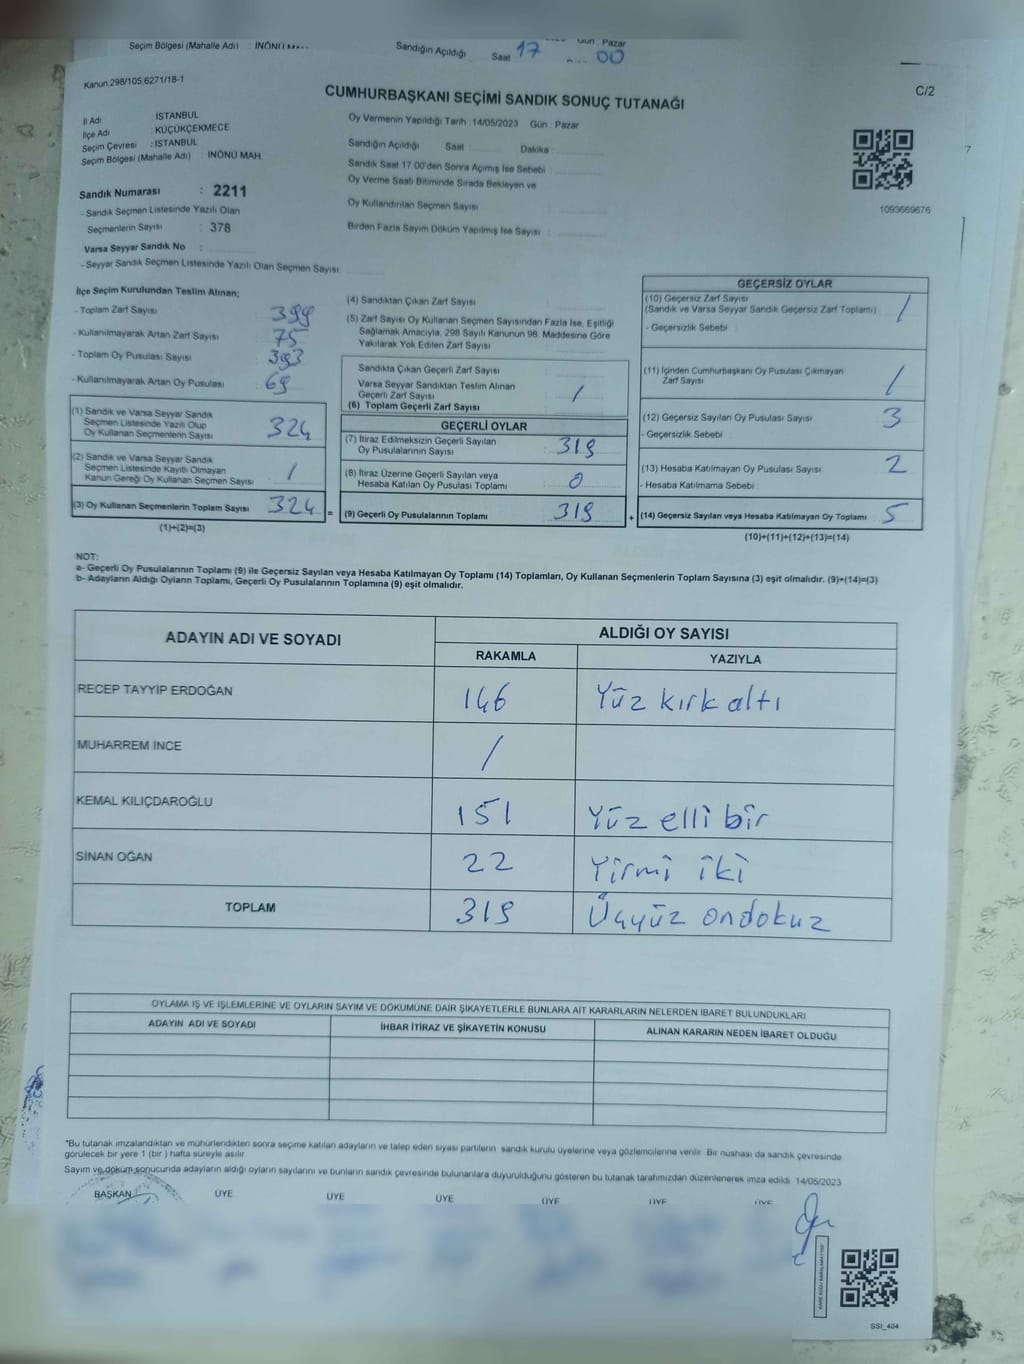 Seçim Bölgesi (Mahalle Adı) : İNÖNÜ
Sandığın Açıldığı Saat 17 00
Gün Pazar
Kanun:298/105,6271/18-1
CUMHURBAŞKANI SEÇİMİ SANDIK SONUÇ TUTANAĞI
C/2
İl Adı İSTANBUL
İlçe Adı KÜÇÜKÇEKMECE
Seçim Çevresi : İSTANBUL
Seçim Bölgesi (Mahalle Adı) : İNÖNÜ MAH.
Oy Vermenin Yapıldığı Tarih : 14/05/2023 Gün : Pazar
Sandığın Açıldığı Saat Dakika
Sandık Saat 17.00'den Sonra Açılmış İse Sebebi
Oy Verme Saati Bitiminde Sırada Bekleyen ve
Oy Kullandırılan Seçmen Sayısı
Birden Fazla Sayım Döküm Yapılmış İse Sayısı :
1093669676
7
Sandık Numarası : 2211
- Sandık Seçmen Listesinde Yazılı Olan
Seçmenlerin Sayısı : 378
Varsa Seyyar Sandık No :
- Seyyar Sandık Seçmen Listesinde Yazılı Olan Seçmen Sayısı:
İlçe Seçim Kurulundan Teslim Alınan;
- Toplam Zarf Sayısı 399
- Kullanılmayarak Artan Zarf Sayısı 75
- Toplam Oy Pusulası Sayısı 393
- Kullanılmayarak Artan Oy Pusulası 69
(1) Sandık ve Varsa Seyyar Sandık
Seçmen Listesinde Yazılı Olup
Oy Kullanan Seçmenlerin Sayısı 324
(2) Sandık ve Varsa Seyyar Sandık
Seçmen Listesinde Kayıtlı Olmayan
Kanun Gereği Oy Kullanan Seçmen Sayısı /
(3) Oy Kullanan Seçmenlerin Toplam Sayısı 324 =
(1)+(2)=(3)
(4) Sandıktan Çıkan Zarf Sayısı
(5) Zarf Sayısı Oy Kullanan Seçmen Sayısından Fazla İse, Eşitliği
Sağlamak Amacıyla, 298 Sayılı Kanunun 98. Maddesine Göre
Yakılarak Yok Edilen Zarf Sayısı
Sandıkta Çıkan Geçerli Zarf Sayısı
Varsa Seyyar Sandıktan Teslim Alınan
Geçerli Zarf Sayısı /
(6) Toplam Geçerli Zarf Sayısı
GEÇERLİ OYLAR
(7) İtiraz Edilmeksizin Geçerli Sayılan
Oy Pusulalarının Sayısı 319
(8) İtiraz Üzerine Geçerli Sayılan veya
Hesaba Katılan Oy Pusulası Toplamı 0
(9) Geçerli Oy Pusulalarının Toplamı 319 +
GEÇERSİZ OYLAR
(10) Geçersiz Zarf Sayısı
(Sandık ve Varsa Seyyar Sandık Geçersiz Zarf Toplamı) /
- Geçersizlik Sebebi :
(11) İçinden Cumhurbaşkanı Oy Pusulası Çıkmayan
Zarf Sayısı /
(12) Geçersiz Sayılan Oy Pusulası Sayısı 3
- Geçersizlik Sebebi :
(13) Hesaba Katılmayan Oy Pusulası Sayısı 2
- Hesaba Katılmama Sebebi :
(14) Geçersiz Sayılan veya Hesaba Katılmayan Oy Toplamı 5
(10)+(11)+(12)+(13)=(14)
NOT:
a- Geçerli Oy Pusulalarının Toplamı (9) ile Geçersiz Sayılan veya Hesaba Katılmayan Oy Toplamı (14) Toplamları, Oy Kullanan Seçmenlerin Toplam Sayısına (3) eşit olmalıdır. (9)+(14)=(3)
b- Adayların Aldığı Oyların Toplamı, Geçerli Oy Pusulalarının Toplamına (9) eşit olmalıdır.
ADAYIN ADI VE SOYADI ALDIĞI OY SAYISI
RAKAMLA YAZIYLA
RECEP TAYYİP ERDOĞAN 146 Yüz kırk altı
MUHARREM İNCE /
KEMAL KILIÇDAROĞLU 151 Yüz elli bir
SİNAN OĞAN 22 Yirmi iki
TOPLAM 319 Üçyüz ondokuz
OYLAMA İŞ VE İŞLEMLERİNE VE OYLARIN SAYIM VE DÖKÜMÜNE DAİR ŞİKAYETLERLE BUNLARA AİT KARARLARIN NELERDEN İBARET BULUNDUKLARI
ADAYIN ADI VE SOYADI İHBAR İTİRAZ VE ŞİKAYETİN KONUSU ALINAN KARARIN NEDEN İBARET OLDUĞU
*Bu tutanak imzalandıktan ve mühürlendikten sonra seçime katılan adayların ve talep eden siyasi partilerin sandık kurulu üyelerine veya gözlemcilerine verilir. Bir nüshası da sandık çevresinde
görülecek bir yere 1 (bir ) hafta süreyle asılır.
Sayım ve döküm sonucunda adayların aldığı oyların sayılarını ve bunların sandık çevresinde bulunanlara duyurulduğunu gösteren bu tutanak tarafımızdan düzenlenerek imza edildi. 14/05/2023
BAŞKAN ÜYE ÜYE ÜYE ÜYE ÜYE ÜYE
SSI_404